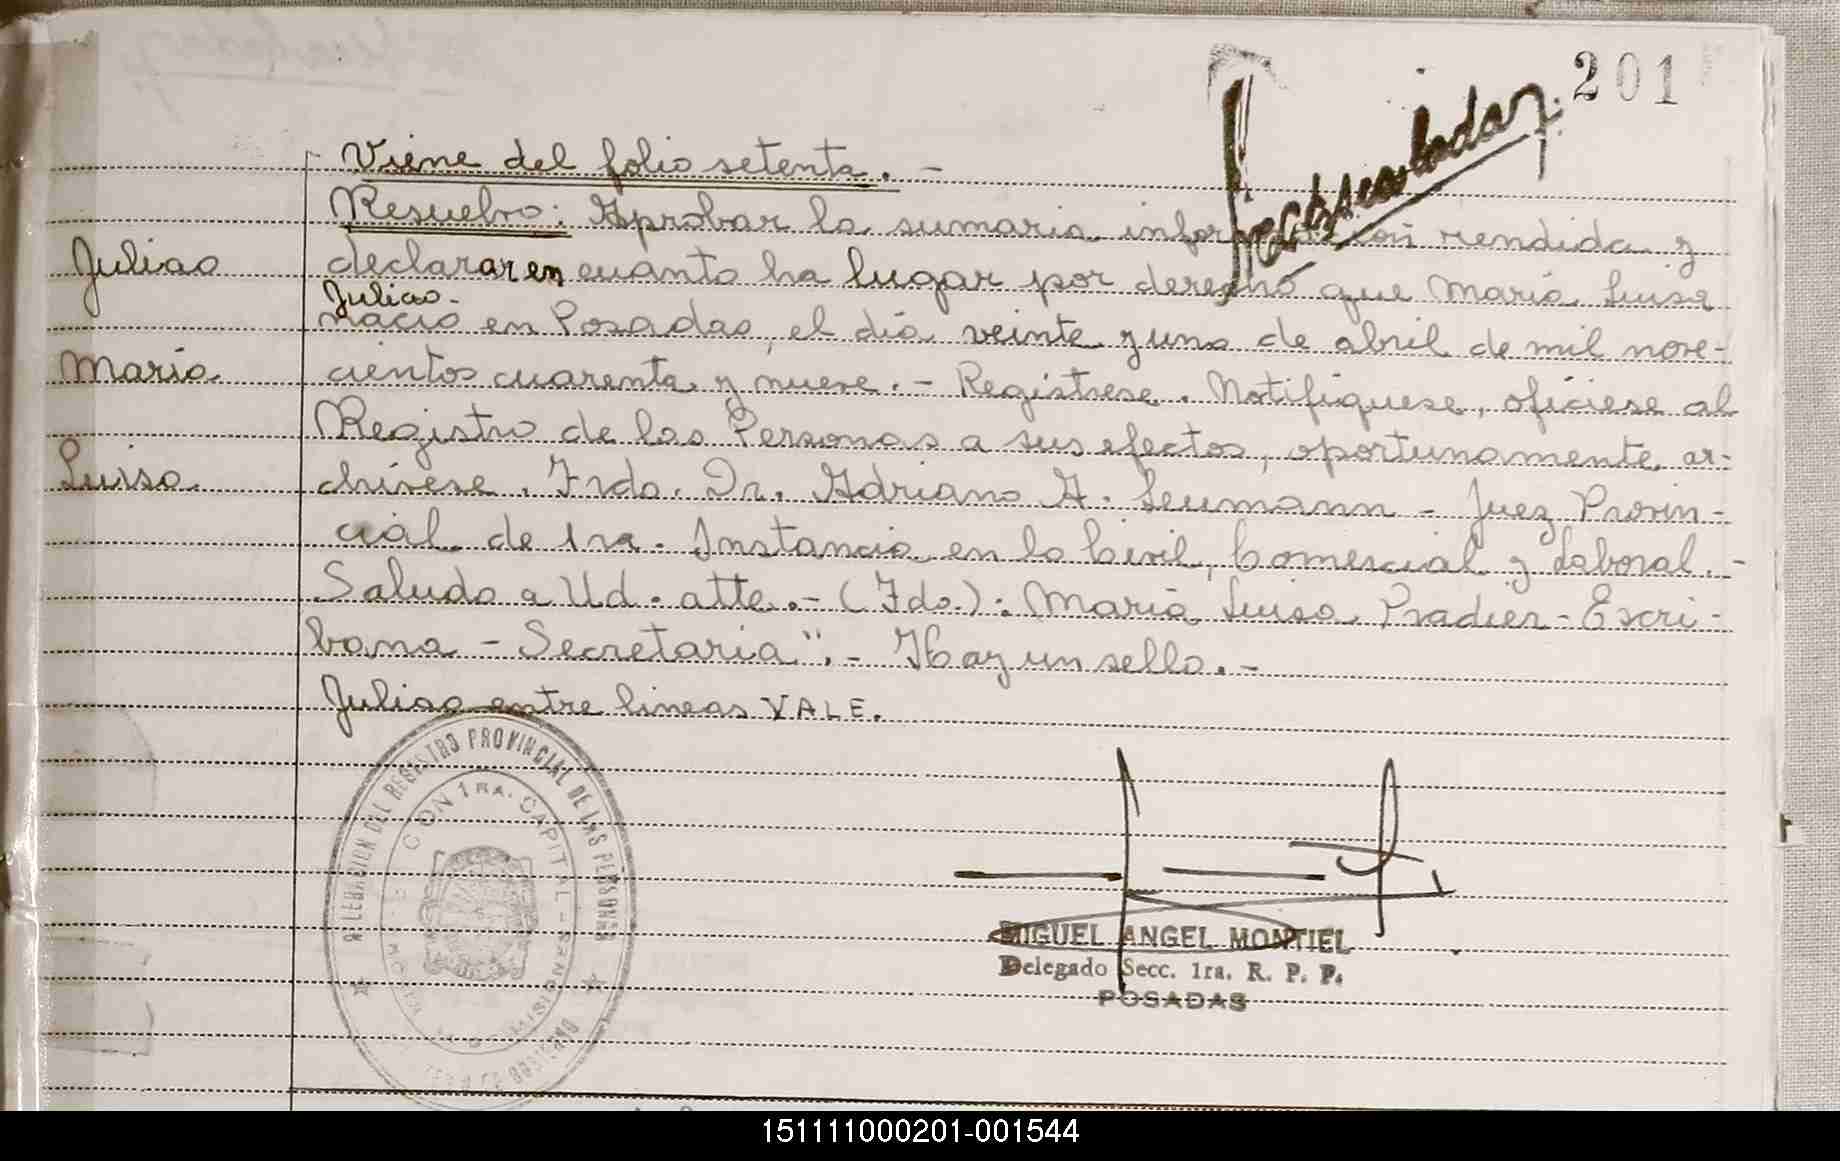 201
Viene del folio setenta. -
Resuelvo: Aprobar la sumaria información rendida y
Juliao
declarar en cuanto ha lugar por derecho que María Luisa
Juliao.
nació en Posadas, el día veinte y uno de abril de mil nove-
María
cientos cuarenta y nueve. - Regístrese. Notifíquese, ofíciese al
Registro de las Personas a sus efectos, oportunamente ar-
Luisa
chívese. Frdo. Dr. Adriano A. Leumann - Juez Provin-
cial de 1ra. Instancia en lo Civil, Comercial y Laboral. -
Saludo a Ud. atte. - (Fdo.): María Luisa Pradier - Escri-
bana - Secretaria". - Hay un sello. -
Juliao entre lineas VALE.
DEL REGISTRO PROVINCIAL DE LAS PERSONAS
1RA. CAPITAL
MIGUEL ANGEL MONTIEL
Delegado Secc. 1ra. R. P. P.
POSADAS
151111000201-001544